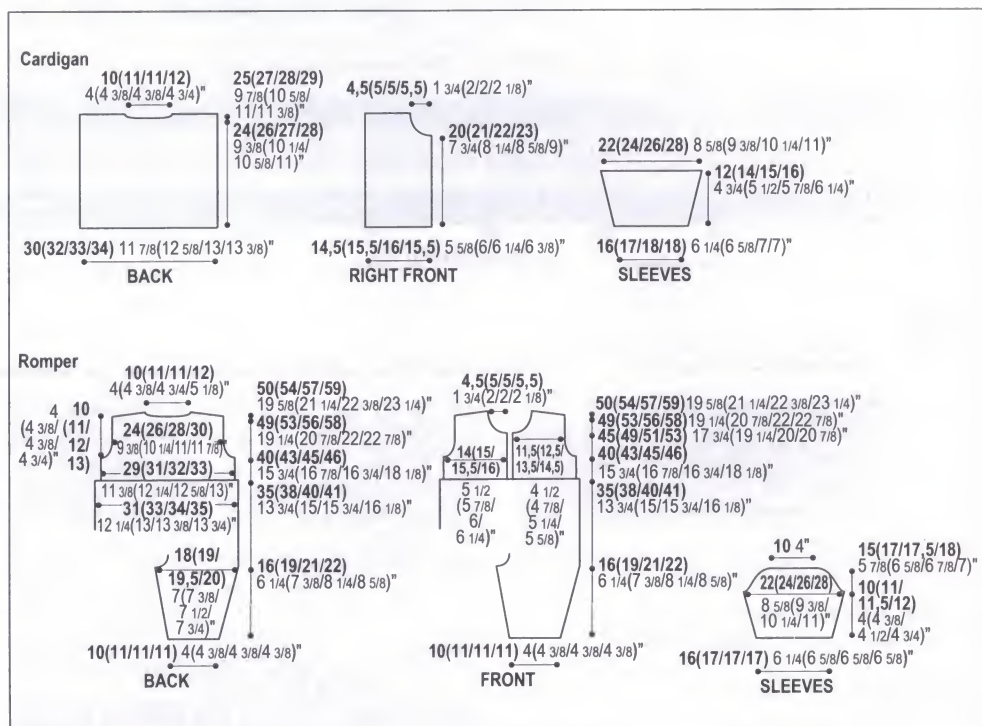 Cardigan
10(11/11/12)
4(4 3/8/4 3/8/4 3/4)"
25(27/28/29)
9 7/8(10 5/8/
11/11 3/8)"
24(26/27/28)
9 3/8(10 1/4/
10 5/8/11)"
30(32/33/34) 11 7/8(12 5/8/13/13 3/8)"
BACK
4,5(5/5/5,5) 1 3/4(2/2/2 1/8)"
20(21/22/23)
7 3/4(8 1/4/8 5/8/9)"
14,5(15,5/16/15,5) 5 5/8(6/6 1/4/6 3/8)"
RIGHT FRONT
22(24/26/28) 8 5/8(9 3/8/10 1/4/11)"
12(14/15/16)
4 3/4(5 1/2/5 7/8/6 1/4)"
16(17/18/18) 6 1/4(6 5/8/7/7)"
SLEEVES
Romper
10(11/11/12)
4(4 3/8/4 3/4/5 1/8)"
4 10
(4 3/8/ (11/
4 3/8/ 12/
4 3/4)" 13)
24(26/28/30)
9 3/8(10 1/4/11/11 7/8)"
29(31/32/33)
11 3/8(12 1/4/12 5/8/13)"
31(33/34/35)
12 1/4(13/13 3/8/13 3/4)"
18(19/
19,5/20)
7(7 3/8/
7 1/2/
7 3/4)"
50(54/57/59)
19 5/8(21 1/4/22 3/8/23 1/4)"
49(53/56/58)
19 1/4(20 7/8/22/22 7/8)"
40(43/45/46)
15 3/4(16 7/8/16 3/4/18 1/8)"
35(38/40/41)
13 3/4(15/15 3/4/16 1/8)"
16(19/21/22)
6 1/4(7 3/8/8 1/4/8 5/8)"
10(11/11/11) 4(4 3/8/4 3/8/4 3/8)"
BACK
4,5(5/5/5,5)
1 3/4(2/2/2 1/8)"
14(15/
15,5/16)
5 1/2
(5 7/8/
6/
6 1/4)"
11,5(12,5/
13,5/14,5)
4 1/2
(4 7/8/
5 1/4/
5 5/8)"
50(54/57/59)19 5/8(21 1/4/22 3/8/23 1/4)"
49(53/56/58)19 1/4(20 7/8/22/22 7/8)"
45(49/51/53) 17 3/4(19 1/4/20/20 7/8)"
40(43/45/46)
15 3/4(16 7/8/16 3/4/18 1/8)"
35(38/40/41)
13 3/4(15/15 3/4/16 1/8)"
16(19/21/22)
6 1/4(7 3/8/8 1/4/8 5/8)"
10(11/11/11) 4(4 3/8/4 3/8/4 3/8)"
FRONT
10 4"
15(17/17,5/18)
5 7/8(6 5/8/6 7/8/7)"
22(24/26/28)
8 5/8(9 3/8/
10 1/4/11)"
10(11/
11,5/12)
4(4 3/8/
4 1/2/4 3/4)"
16(17/17/17) 6 1/4(6 5/8/6 5/8/6 5/8)"
SLEEVES